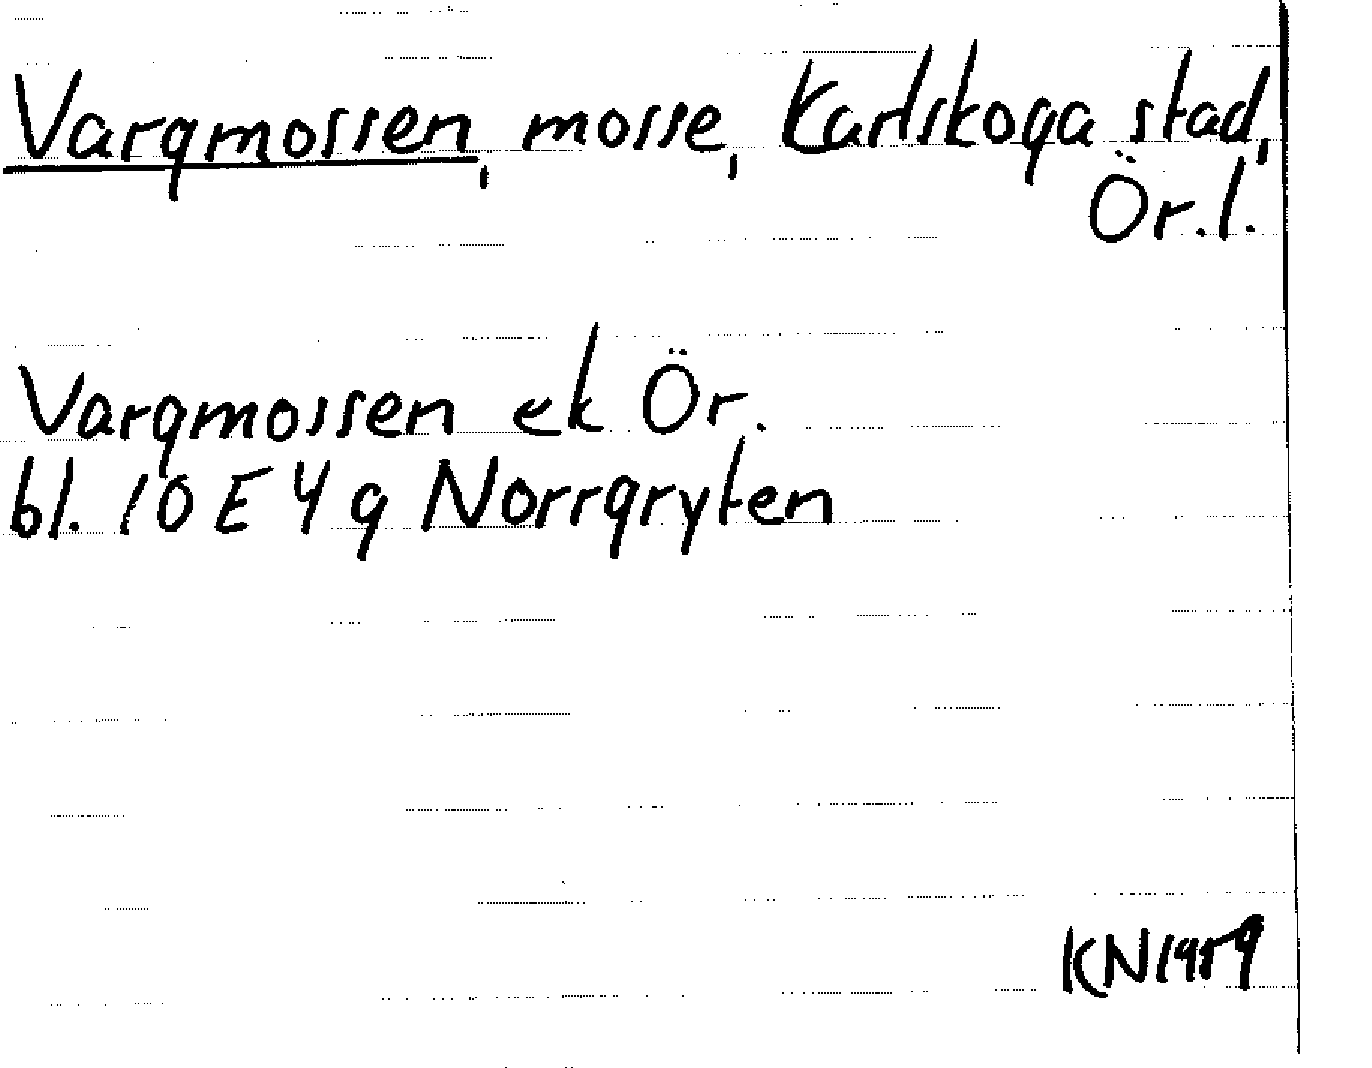 Vargmossen, mosse, Karlskoga stad,
Ör.l.
Vargmossen ek Ör.
bl. 10 E 4 g Norrgryten
KN 1959